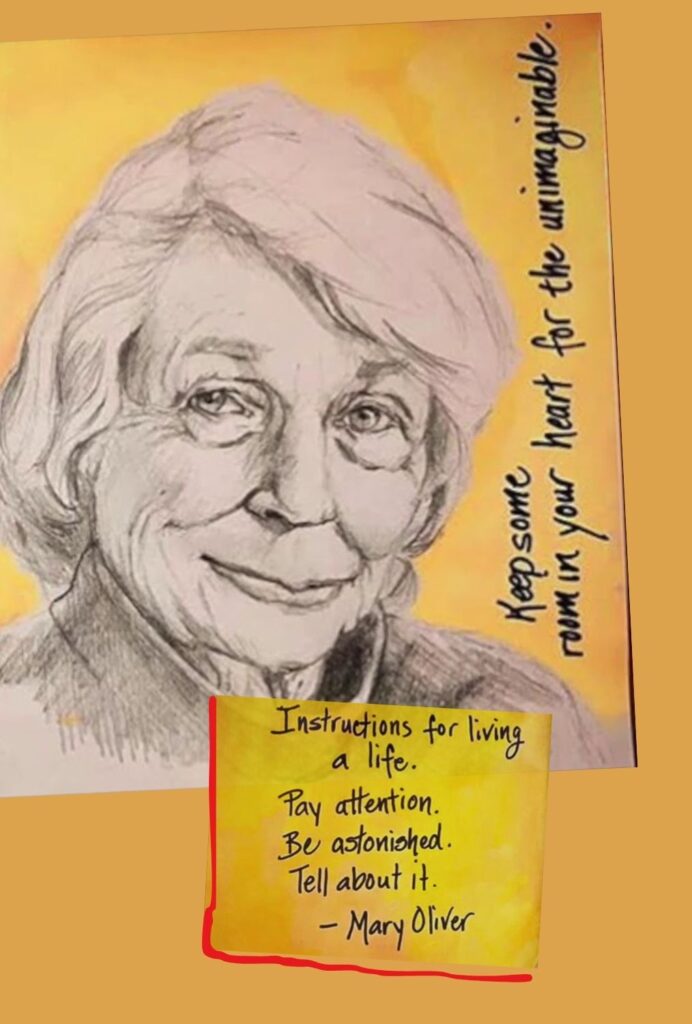 Keep some
room in your heart for the unimaginable.
Instructions for living
a life.
Pay attention.
Be astonished.
Tell about it.
— Mary Oliver